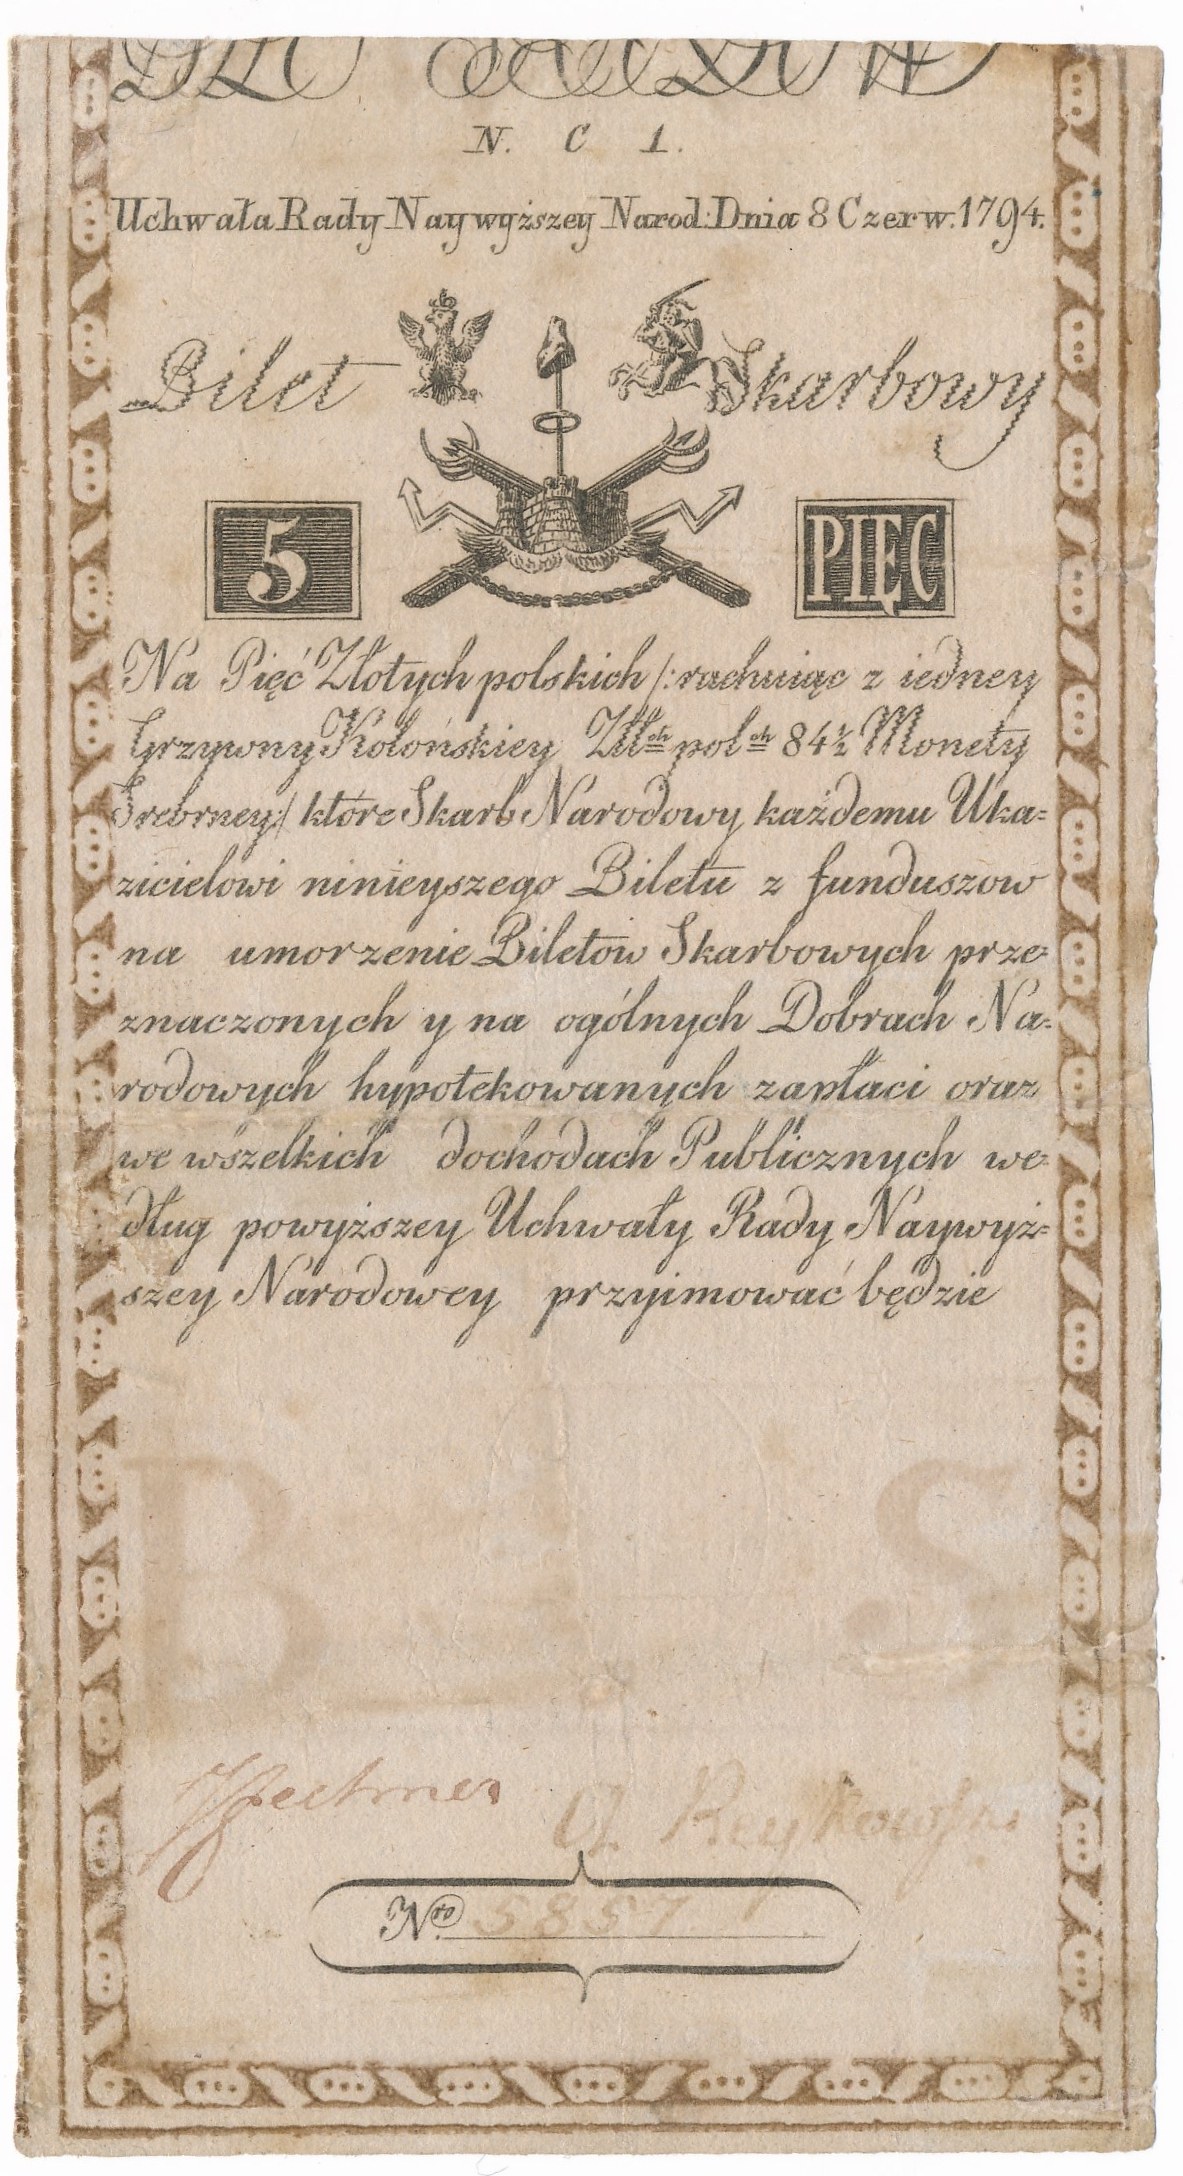 N. C 1.
Uchwała Rady Naywyższey Narod: Dnia 8 Czerw. 1794.
Bilet Skarbowy
5 PIĘC
Na Pięć Złotych polskich /: rachuiąc z iedney
Grzywny Kolońskiey Złł.ch pol.ch 84½ Monety
Srebrney :/ które Skarb Narodowy każdemu Uka=
zicielowi ninieyszego Biletu z funduszow
na umorzenie Biletow Skarbowych prze=
znaczonych y na ogólnych Dobrach Na=
rodowych hypotekowanych zapłaci oraz
we wszelkich dochodach Publicznych we=
dług powyższey Uchwały Rady Naywyż=
szey Narodowey przyimować będzie
B S
Nro. 5857